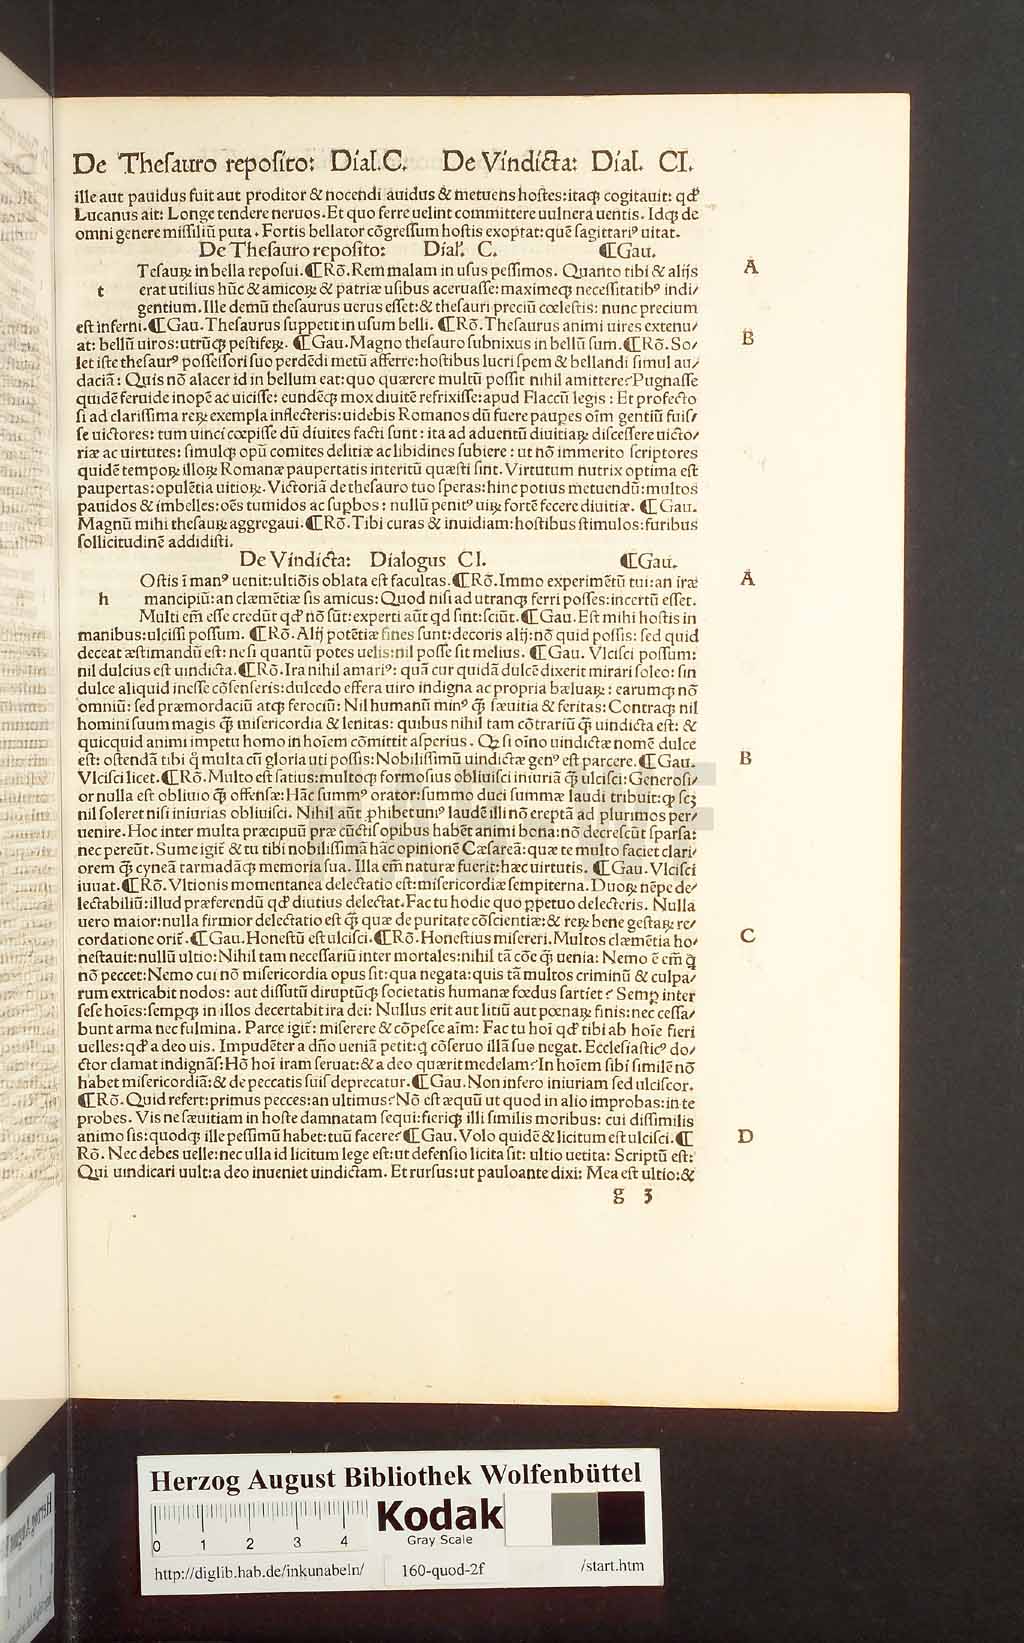 De Thesauro reposito: Dial.C. De Vindicta: Dial. CI.
ille aut pauidus fuit aut proditor & nocendi auidus & metuens hostes:itaqꝫ cogitauit: qđ
Lucanus ait: Longe tendere neruos.Et quo ferre uelint committere uulnera uentis. Idqꝫ de
omni genere missiliū puta. Fortis bellator cōgressum hostis exoptat:quē sagittariꝰ uitat.
De Thesauro reposito: Dial. C. ¶Gau.
Tesauꝝ in bella reposui.¶Rō.Rem malam in usus pessimos. Quanto tibi & alijs A
t erat utilius hūc & amicoꝝ & patriæ usibus aceruasse:maximeqꝫ necessitatibꝰ indi/
gentium.Ille demū thesaurus uerus esset:& thesauri preciū cœlestis: nunc precium
est inferni.¶Gau.Thesaurus suppetit in usum belli. ¶Rō.Thesaurus animi uires extenu/
at: bellū uiros:utrūqꝫ pestifeꝝ. ¶Gau.Magno thesauro subnixus in bellū sum.¶Rō.So/ B
let iste thesaurꝰ possessori suo perdēdi metū afferre:hostibus lucri spem & bellandi simul au/
daciā: Quis nō alacer id in bellum eat:quo quærere multū possit nihil amittere?Pugnasse
quidē feruide inopē ac uicisse: eundēqꝫ mox diuitē refrixisse:apud Flaccū legis: Et profecto
si ad clarissima reꝝ exempla inflecteris:uidebis Romanos dū fuere paupes oīm gentiū fuis/
se uictores: tum uinci cœpisse dū diuites facti sunt: ita ad aduentū diuitiaꝝ discessere uicto/
riæ ac uirtutes: simulqꝫ opū comites delitiæ ac libidines subiere: ut nō immerito scriptores
quidē tempoꝝ illoꝝ Romanæ paupertatis interitū quæsti sint.Virtutum nutrix optima est
paupertas:opulētia uitioꝝ.Victoriā de thesauro tuo speras:hinc potius metuendū:multos
pauidos & imbelles:oēs tumidos ac supbos: nullū penitꝰ uiꝝ fortē fecere diuitiæ. ¶Gau.
Magnū mihi thesauꝝ aggregaui.¶Rō.Tibi curas & inuidiam:hostibus stimulos:furibus
sollicitudinē addidisti.
De Vindicta: Dialogus CI. ¶Gau.
Ostis ī manꝰ uenit:ultiōis oblata est facultas.¶Rō.Immo experimētū tui:an iræ A
h mancipiū:an clæmētiæ sis amicus: Quod nisi ad utranqꝫ ferri posses:incertū esset.
Multi em̄ esse credūt qđ nō sūt:experti aūt qd sint:sciūt.¶Gau.Est mihi hostis in
manibus:ulcisci possum. ¶Rō.Alij potētiæ fines sunt:decoris alij:nō quid possis: sed quid
deceat æstimandū est: ne si quantū potes uelis:nil posse sit melius. ¶Gau. Vlcisci possum:
nil dulcius est uindicta.¶Rō.Ira nihil amariꝰ: quā cur quidā dulcē dixerit mirari soleo: sin
dulce aliquid inesse cōsenseris:dulcedo effera uiro indigna ac propria bæluaꝝ: earumqꝫ nō
omniū: sed præmordaciū atqꝫ ferociū: Nil humanū minꝰ q̄ꝫ sæuitia & feritas: Contraqꝫ nil
homini suum magis q̄ꝫ misericordia & lenitas: quibus nihil tam cōtrariū q̄ꝫ uindicta est: &
quicquid animi impetu homo in hoīem cōmittit asperius. Qꝫ si oīno uindictæ nomē dulce
est: ostendā tibi q̄ multa cū gloria uti possis:Nobilissimū uindictæ genꝰ est parcere.¶Gau. B
Vlcisci licet.¶Rō.Multo est satius:multoqꝫ formosius obliuisci iniuriā q̄ꝫ ulcisci:Generosi/
or nulla est obliuio q̄ꝫ offensæ: Hāc summꝰ orator:summo duci summæ laudi tribuit:qꝫ scꝫ
nil soleret nisi iniurias obliuisci. Nihil aūt phibet:unꝰ laudē illi nō ereptā ad plurimos per/
uenire.Hoc inter multa præcipuū præ cūctis opibus habēt animi bona:nō decrescūt sparsa:
nec pereūt.Sume igit̄ & tu tibi nobilissimā hāc opinionē Cæsareā:quæ te multo faciet clari/
orem q̄ꝫ cyneā tarmadāqꝫ memoria sua. Illa em̄ naturæ fuerit:hæc uirtutis. ¶Gau.Vlcisci
iuuat.¶Rō.Vltionis momentanea delectatio est:misericordiæ sempiterna.Duoꝝ nēpe de/
lectabiliū:illud præferendū qđ diutius delectat.Fac tu hodie quo ppetuo delecteris. Nulla
uero maior:nulla firmior delectatio est q̄ꝫ quæ de puritate cōscientiæ:& reꝝ bene gestaꝝ re/
cordatione orit̄.¶Gau.Honestū est ulcisci.¶Rō.Honestius misereri.Multos clæmētia ho/ C
nestauit:nullū ultio:Nihil tam necessariū inter mortales:nihil tā cōe q̄ꝫ uenia: Nemo ē em̄ q̄
nō peccet:Nemo cui nō misericordia opus sit:qua negata:quis tā multos criminū & culpa/
rum extricabit nodos: aut dissutū diruptūqꝫ societatis humanæ fœdus sartiet? Semp inter
sese hoīes:sempqꝫ in illos decertabit ira dei: Nullus erit aut litiū aut pœnaꝝ finis:nec cessa/
bunt arma nec fulmina. Parce igit̄: miserere & cōpesce aīm: Fac tu hoī qđ tibi ab hoīe fieri
uelles:qđ a deo uis. Impudēter a dño ueniā petit:q̄ cōseruo illā suo negat. Ecclesiasticꝰ do/
ctor clamat indignāſ:Hō hoī iram seruat:& a deo quærit medelam?In hoīem sibi similē nō
habet misericordiā:& de peccatis suis deprecatur.¶Gau.Non infero iniuriam sed ulciscor.
¶Rō.Quid refert:primus pecces:an ultimus?Nō est æquū ut quod in alio improbas:in te
probes. Vis ne sæuitiam in hoste damnatam sequi:fieriqꝫ illi similis moribus: cui dissimilis
animo sis:quodqꝫ ille pessimū habet:tuū facere?¶Gau.Volo quidē & licitum est ulcisci.¶ D
Rō. Nec debes uelle:nec ulla id licitum lege est:ut defensio licita sit: ultio uetita: Scriptū est:
Qui uindicari uult:a deo inueniet uindictam. Et rursus:ut pauloante dixi: Mea est ultio:&
g 3
HAB WF
Herzog August Bibliothek Wolfenbüttel
0 1 2 3 4
Kodak
Gray Scale
http://diglib.hab.de/inkunabeln/ 160-quod-2f /start.htm